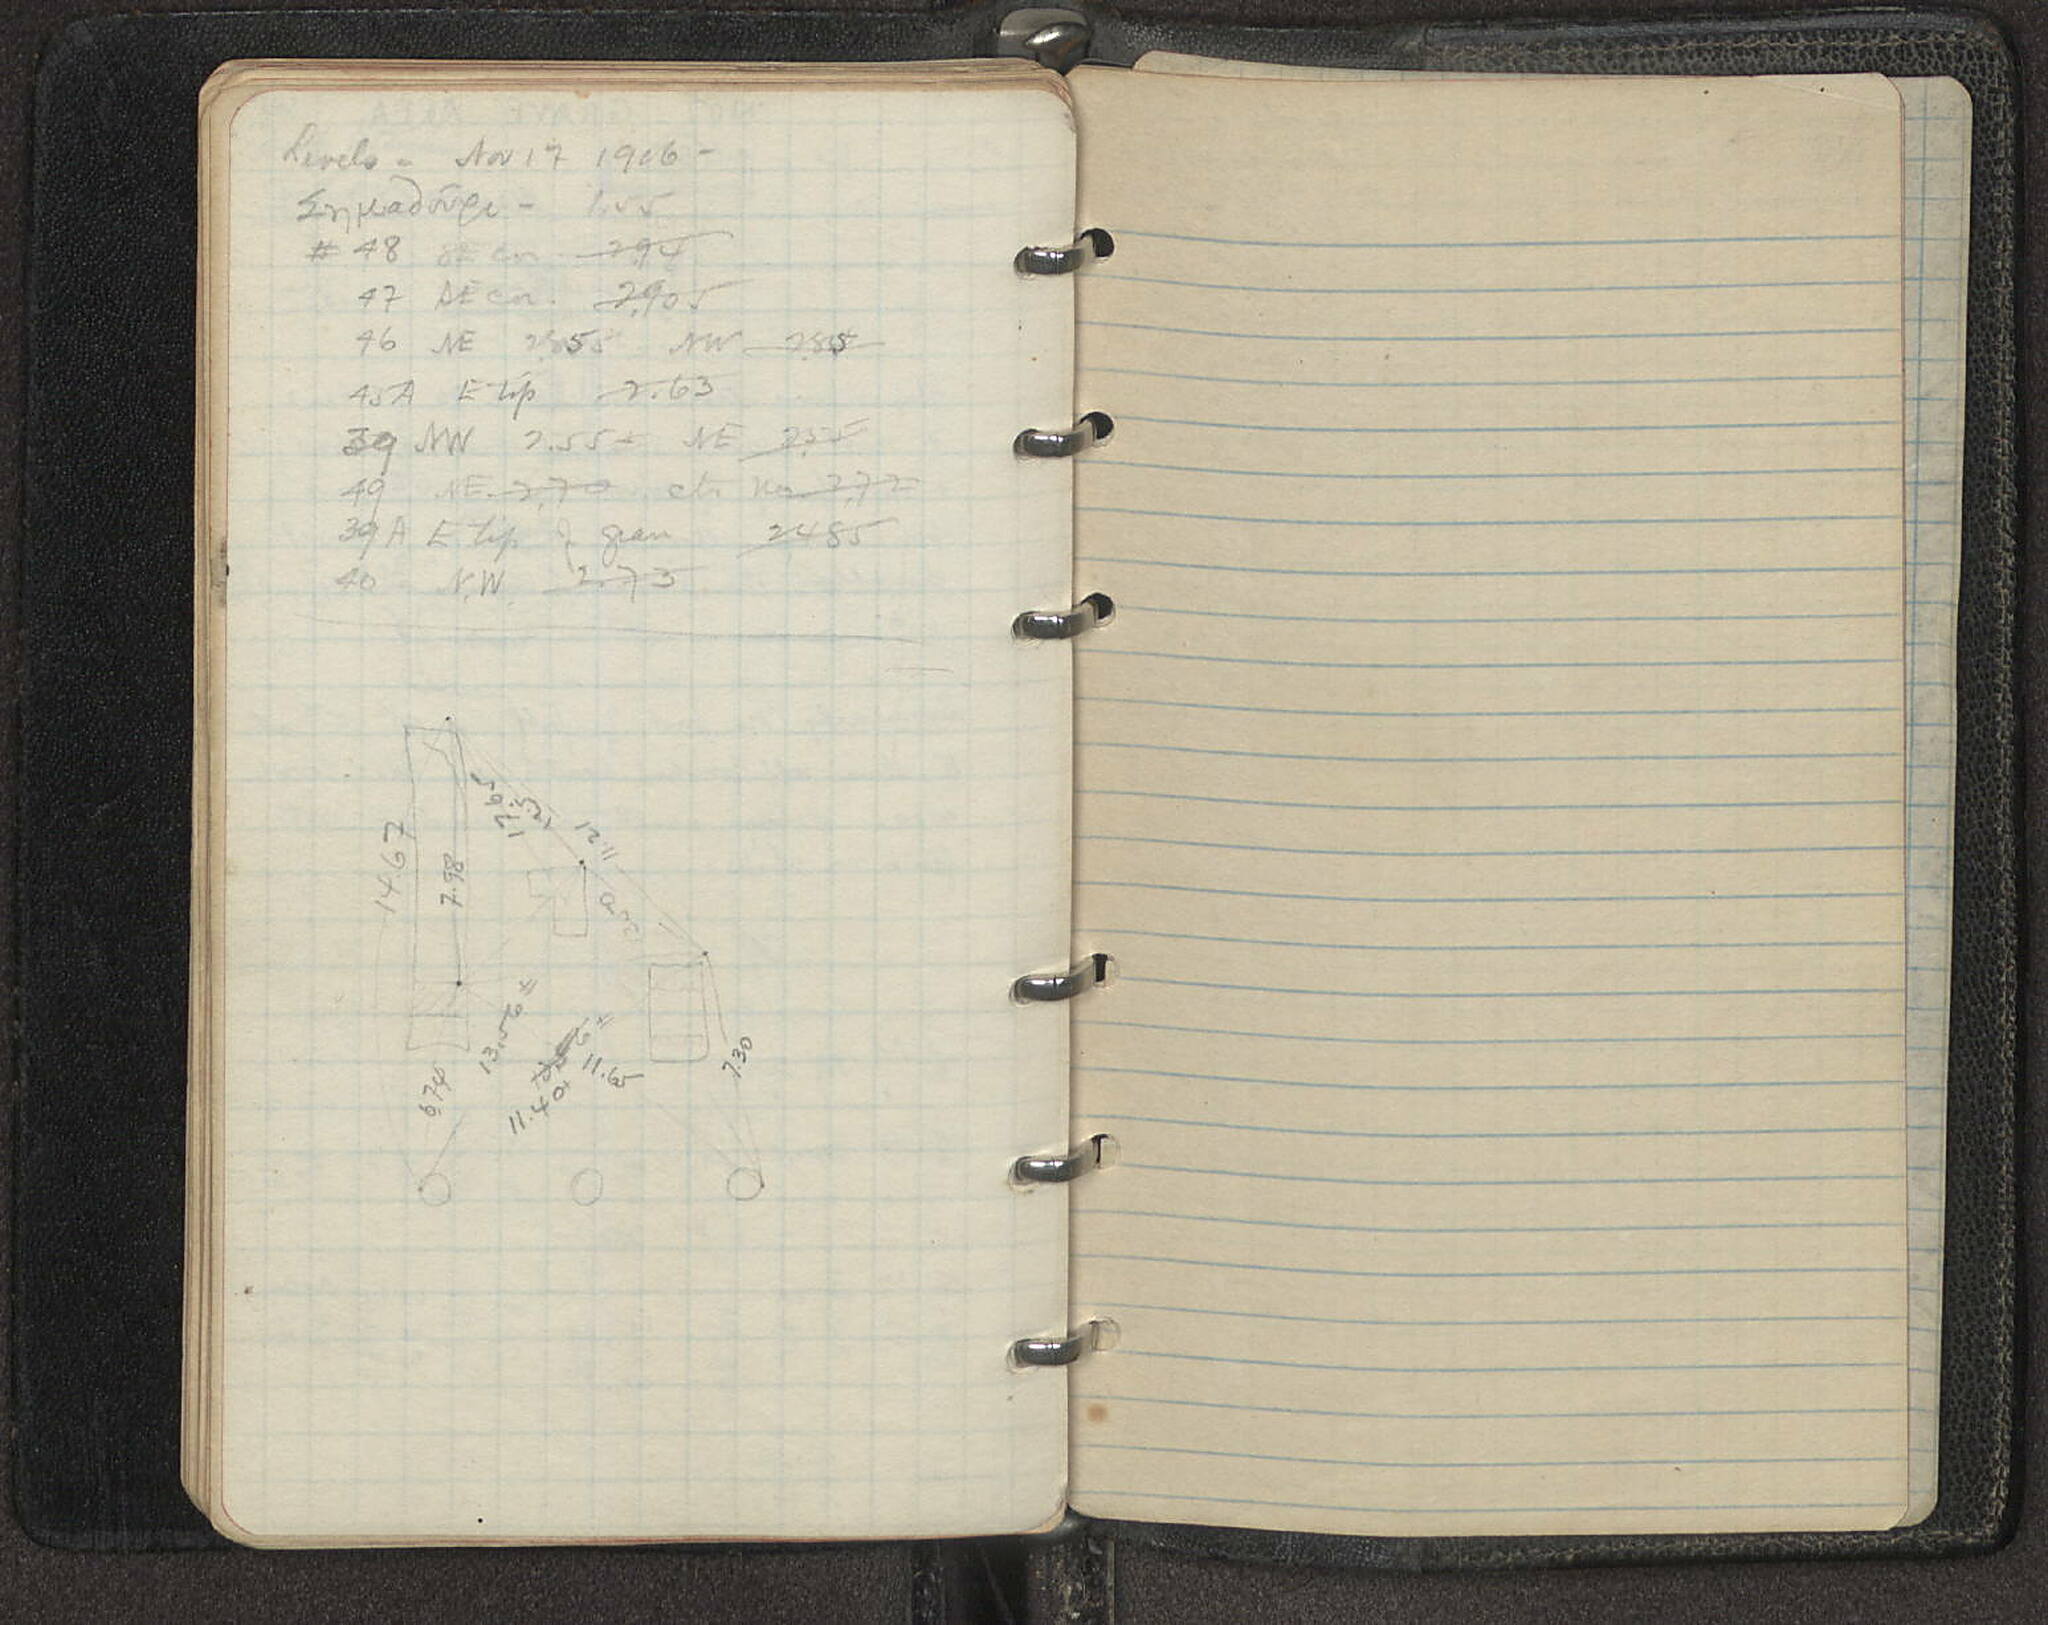 Levels - Nov 17 1906 -
Σημαδούρι - 1.55
# 48 SE cor. 2.94
47 SE cor. 2.905
46 NE 2.855 NW 2.85
45A E lip 2.63
39 NW 2.55± NE 2.55
49 NE. 2.70 2.72
39A E lip of 2.485
40 N.W. 2.73
14.67
7.98
17.65
12.5
11.21
13.56 =
11.65
11.40
6.74
7.30